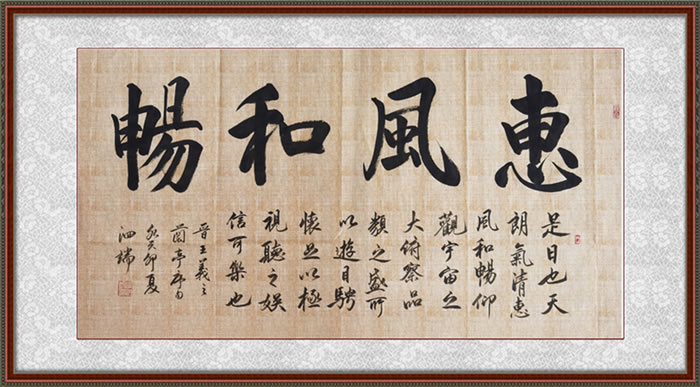 惠風和暢
是日也天
朗氣清惠
風和暢仰
觀宇宙之
大俯察品
類之盛所
以遊目騁
懷足以極
視聽之娛
信可樂也
晉王羲之
蘭亭序句
癸卯夏
泗瑞